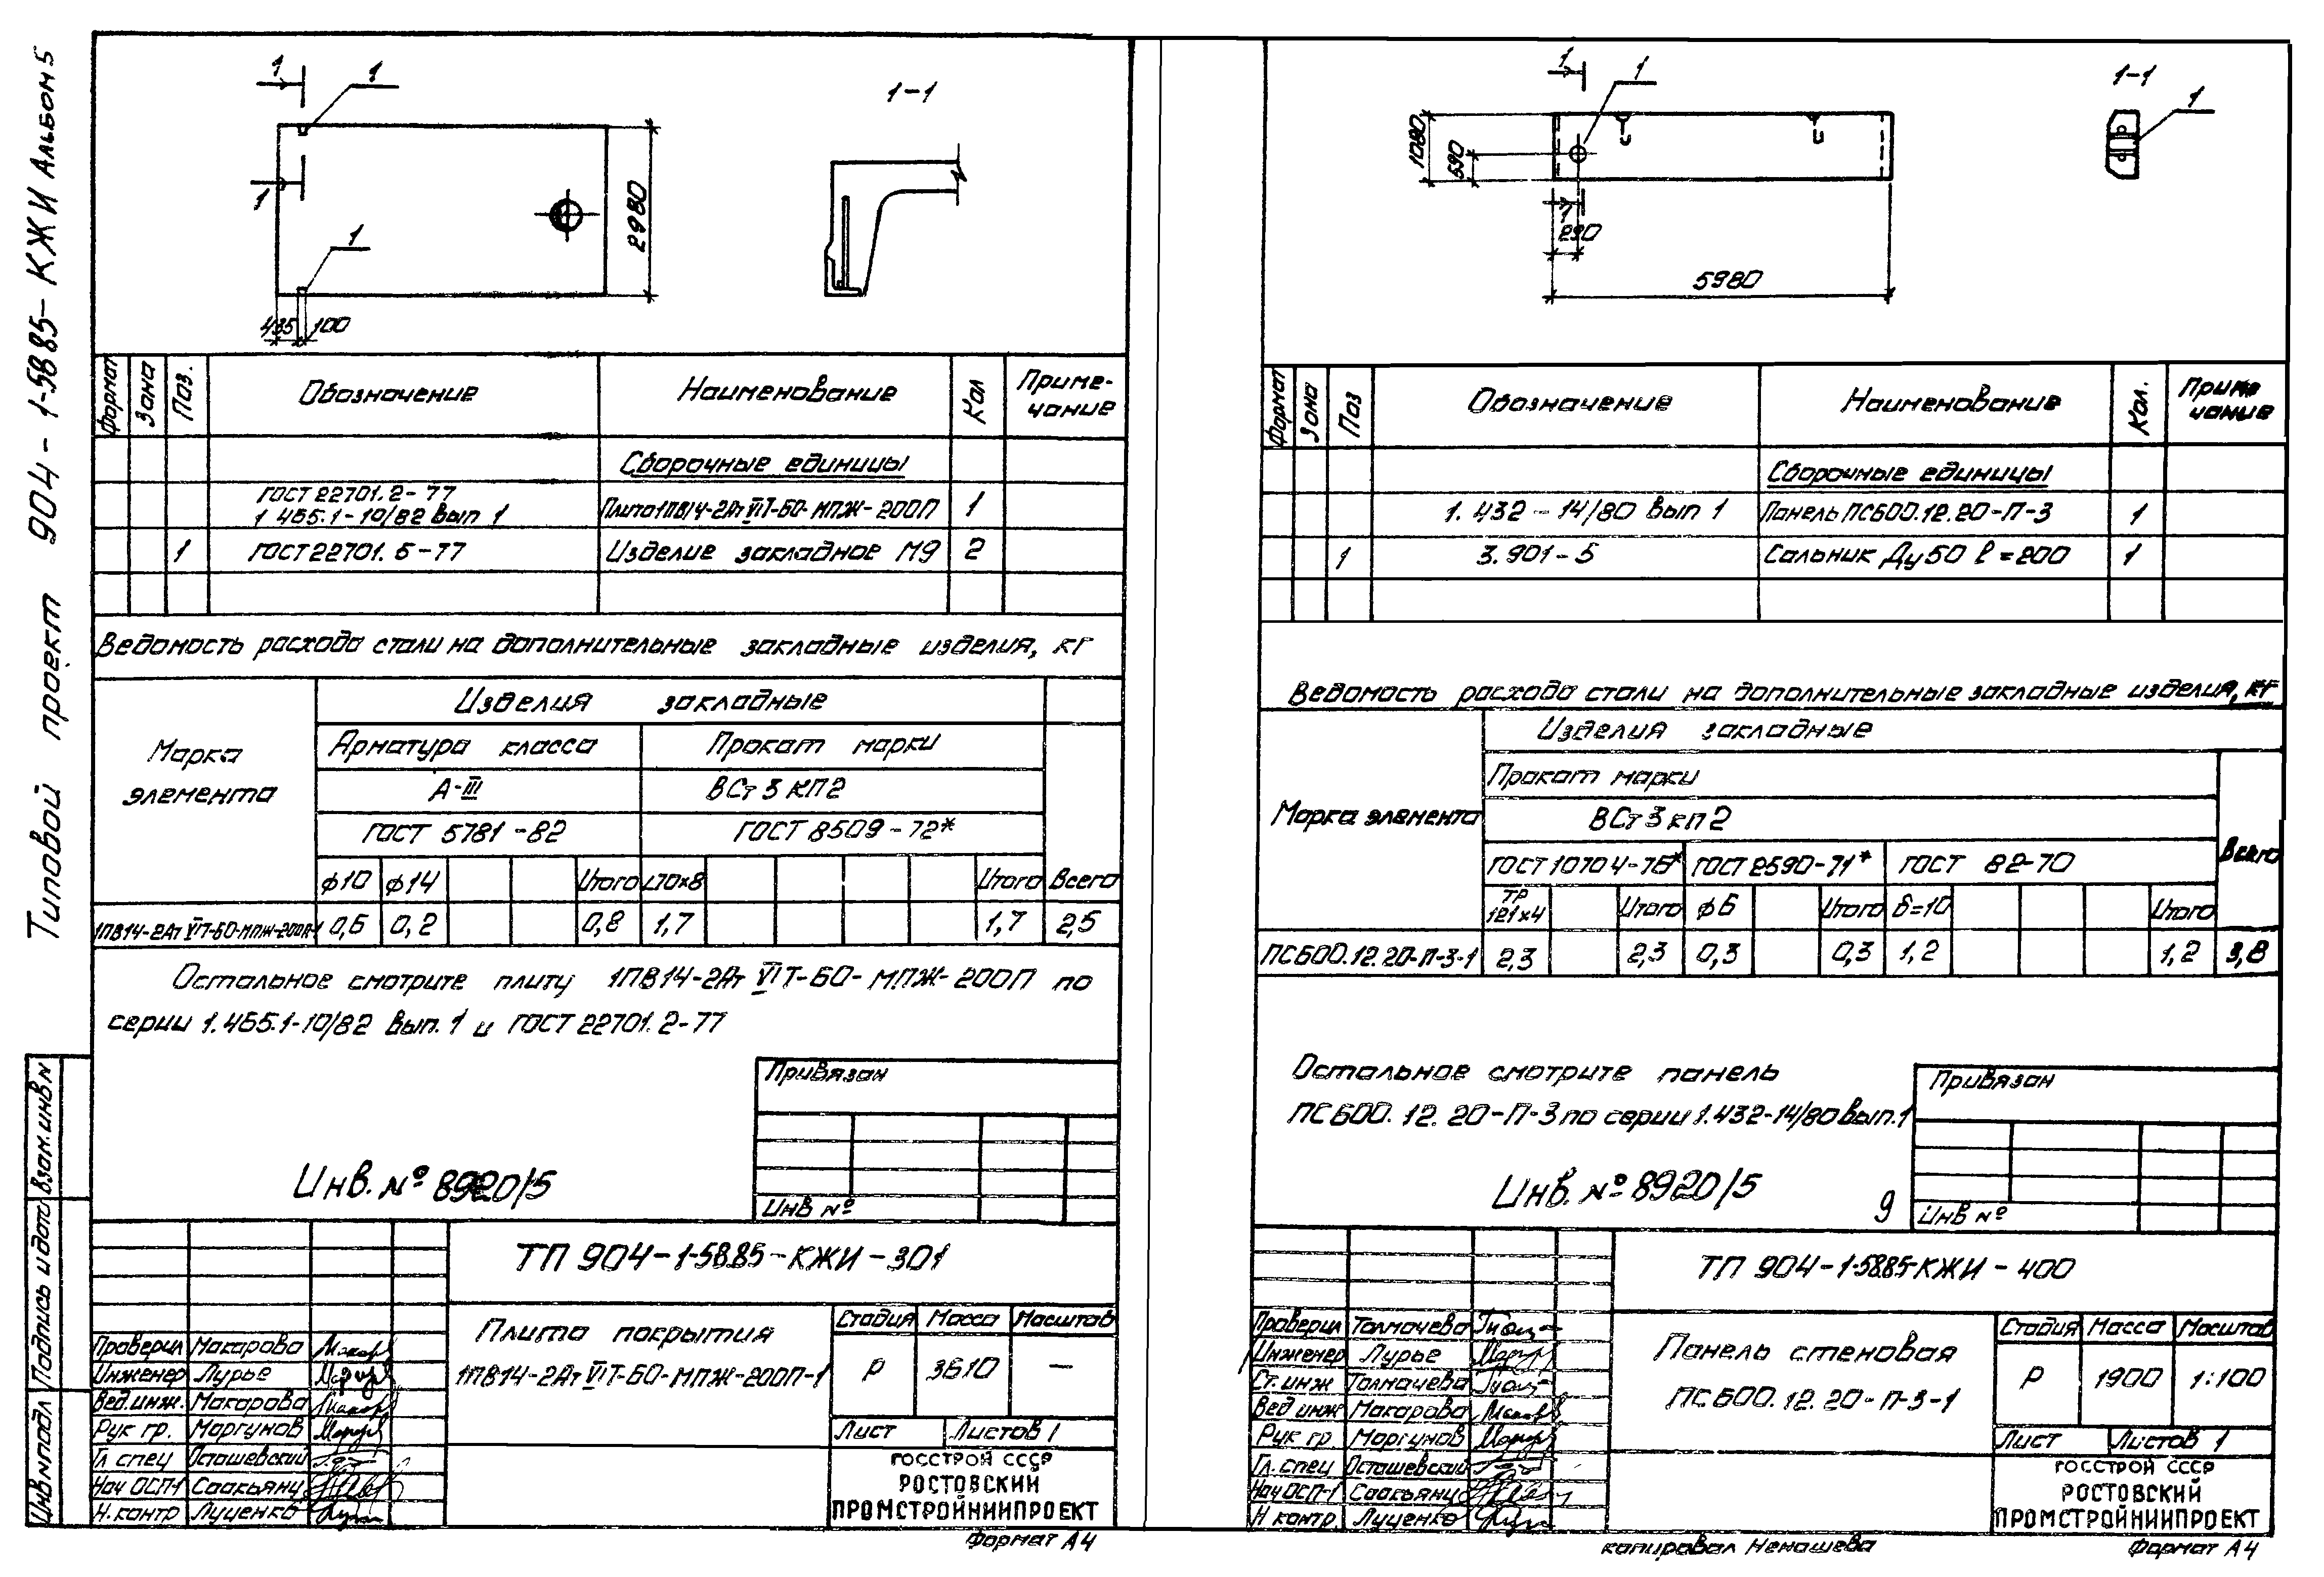 Типовой проект 904-1-58.85-КЖИ Альбом 5
1
1
1-1
1
1
2980
435 100
Формат Зона Поз. Обозначение Наименование Кол Приме-
чание
Сборочные единицы
ГОСТ 22701.2-77
1.465.1-10/82 вып 1 Плита 1ПВ14-2Ат VIТ-60-МПЖ-200П 1
1 ГОСТ 22701.5-77 Изделие закладное М9 2
Ведомость расхода стали на дополнительные закладные изделия, кг
Марка элемента
Изделия закладные
Арматура класса Прокат марки
А-III ВСт3 КП2
ГОСТ 5781-82 ГОСТ 8509-72*
ф10 ф14 Итого ∟70х8 Итого Всего
1ПВ14-2Ат VIТ-60-МПЖ-200П-1 0,6 0,2 0,8 1,7 1,7 2,5
Остальное смотрите плиту 1ПВ14-2Ат VIТ-60-МПЖ-200П по
серии 1.465.1-10/82 вып. 1 и ГОСТ 22701.2-77
Привязан
Инв. № 8920/5
Инв №
ТП 904-1-58.85-КЖИ-301
Плита покрытия
1ПВ14-2Ат VIТ-60-МПЖ-200П-1
Стадия Масса Масштаб
Р 3610 —
Лист Листов 1
Проверил Макарова
Инженер Лурье
Вед.инж. Макарова
Рук гр. Моргунов
Гл спец Осташевский
Нач ОСП-1 Саакьянц
Н.контр Луценко
ГОССТРОЙ СССР
РОСТОВСКИЙ
ПРОМСТРОЙНИИПРОЕКТ
Формат А4
Инв № подл Подпись и дата Взам.инв №
1
1
1-1
1
1080
590
1
290
5980
Формат Зона Поз Обозначение Наименование Кол. Приме
чание
Сборочные единицы
1.432-14/80 вып 1 Панель ПС600.12.20-П-3 1
1 3.901-5 Сальник Ду50 l=200 1
Ведомость расхода стали на дополнительные закладные изделия, кг
Марка элемента
Изделия закладные
Прокат марки
ВСт3кп2
ГОСТ 10704-76* ГОСТ 2590-71* ГОСТ 82-70 Всего
ТР
121х4 Итого ф6 Итого δ=10 Итого
ПС600.12.20-П-3-1 2,3 2,3 0,3 0,3 1,2 1,2 3,8
Остальное смотрите панель
ПС600.12.20-П-3 по серии 1.432-14/80 вып.1
Привязан
Инв. № 8920/5
9
Инв №
ТП 904-1-58.85-КЖИ-400
Панель стеновая
ПС600.12.20-П-3-1
Стадия Масса Масштаб
Р 1900 1:100
Лист Листов 1
Проверил Толмачева
Инженер Лурье
Ст.инж Толмачева
Вед инж Макарова
Рук гр Моргунов
Гл.спец Осташевский
Нач ОСП-1 Саакьянц
Н контр. Луценко
ГОССТРОЙ СССР
РОСТОВСКИЙ
ПРОМСТРОЙНИИПРОЕКТ
копировал Ненашева
Формат А4